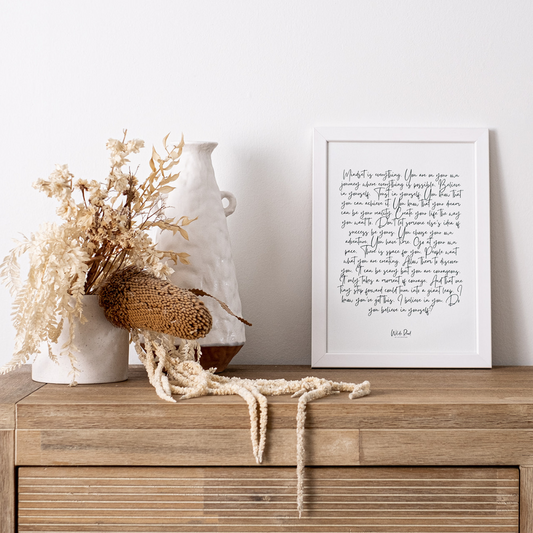 Mindset is everything. You are on your own
journey where everything is possible. Believe
in yourself. Trust in yourself. You know that
you can achieve it. You know that your dreams
can be your reality. Create your life the way
you want to. Don't let someone else's idea of
success be yours. You choose your own
adventure. You have time. Go at your own
pace. There is space for you. People want
what you are creating. Allow them to discover
you. It can be scary but you are courageous.
It only takes a moment of courage. And that one
tiny step forward could turn into a giant leap. I
know you've got this. I believe in you. Do
you believe in yourself?